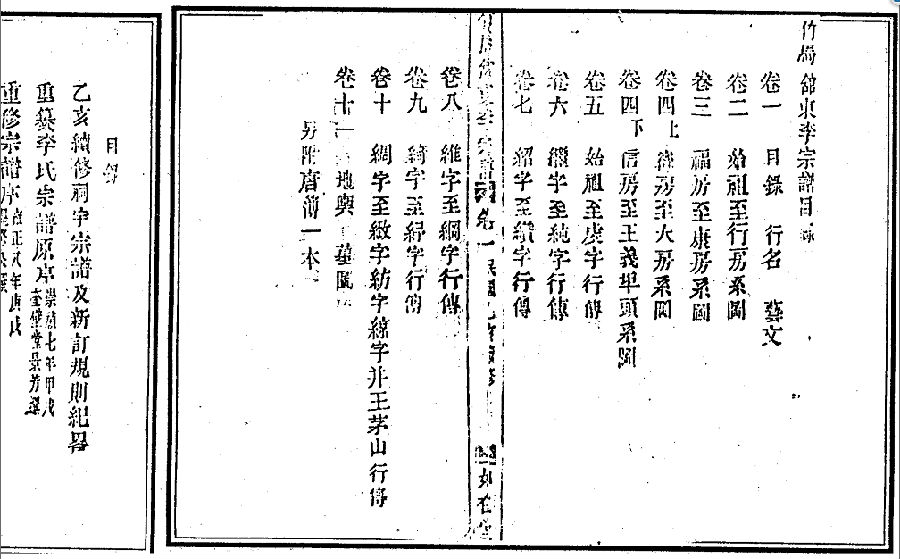 竹馬館東李宗譜目錄
卷一　目錄　行名　藝文
卷二　始祖至行房系圖
卷三　福房至康房系圖
卷四上　房至火房系圖
卷四下　信房至王義埠頭系圖
卷五　始祖至虔字行傳
卷六　字至純字行傳
卷七　紹字至纘字行傳
宗譜　卷一　如在堂
卷八　維字至綱字行傳
卷九　綺字至字行傳
卷十　綢字至緻字紡字綜字并王茅山行傳
卷十一　地輿　墓圖
另附舊簿一本
目錄
乙亥續修祠宇宗譜及新訂規則紀畧
重纂李氏宗譜原序崇禎七年甲戌
重修宗譜序雍正八年庚戌